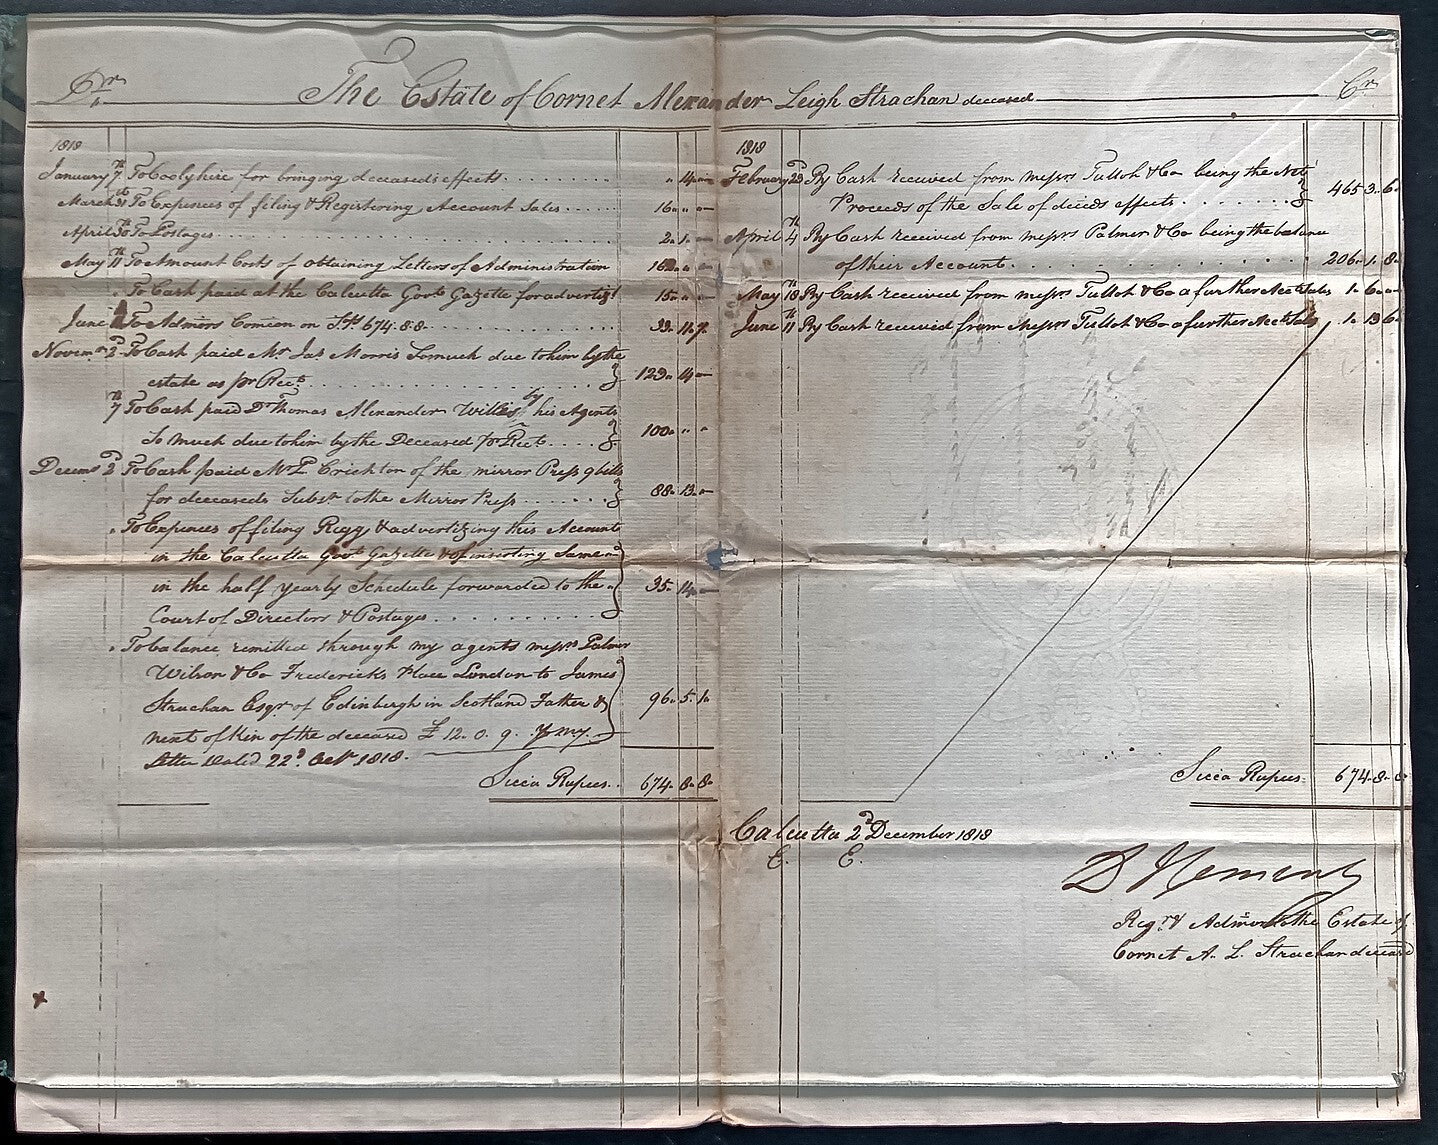 Dr. The Estate of Cornet Alexander Leigh Strachan deceased Cr
1818
January 7th To Cooly hire for bringing deceaseds effects . . . " 14 "
March 31st To Expences of filing & Registering Account Sales . . . 16 " "
April 30th To Postages . . . 2 1
May 11th To Amount Costs of obtaining Letters of Administration
" To Cash paid at the Calcutta Govt Gazette for advertizg 15 " "
June To Admors Comion on SRs 674.8.8 . . . 33 11 7
Novemr 2d To Cash paid Mr Jas Morris Somuch due to him by the
estate as pr Rect . . . 123 14
7th To Cash paid Dr Thomas Alexander Willis by his Agents
So much due to him by the Deceased pr Rect . . . 100 " "
Decemr 2d To Cash paid Mr P. Crichton of the mirror Press 9 bills
for deceaseds Subsn to the Mirror Press . . . 88 13
" To Expences of filing Regg & advertizing this Account
in the Calcutta Govt Gazette & of inserting Same
in the half yearly Schedule forwarded to the
Court of Directors & Postages . . . 35 14
" To balance remitted through my agents messrs Palmer
Wilson & Co Fredericks Place London to James
Strachan Esqr of Edinburgh in Scotland Father &
next of Kin of the deceased £ 12. 0. 9. 96 5 1
letter dated 22d Octr 1818.
Sicca Rupees . . 674 8 8
1818
February 23d By Cash received from messrs Tulloh & Co being the Net
Proceeds of the Sale of deceds effects . . . 465 3 6
April 4th By Cash received from messrs Palmer & Co being the balance
of their Account . . . 206 1 8
May 18th By Cash received from messrs Tulloh & Co a further Acct Sales 1 6
June 11th By Cash received from Messrs Tulloh & Co a further Acct Sales 1 13 6
Sicca Rupees. 674 8 8
Calcutta 2d December 1818
E. E.
Regr & Admor to the Estate of
Cornet A. L. Strachan deceased